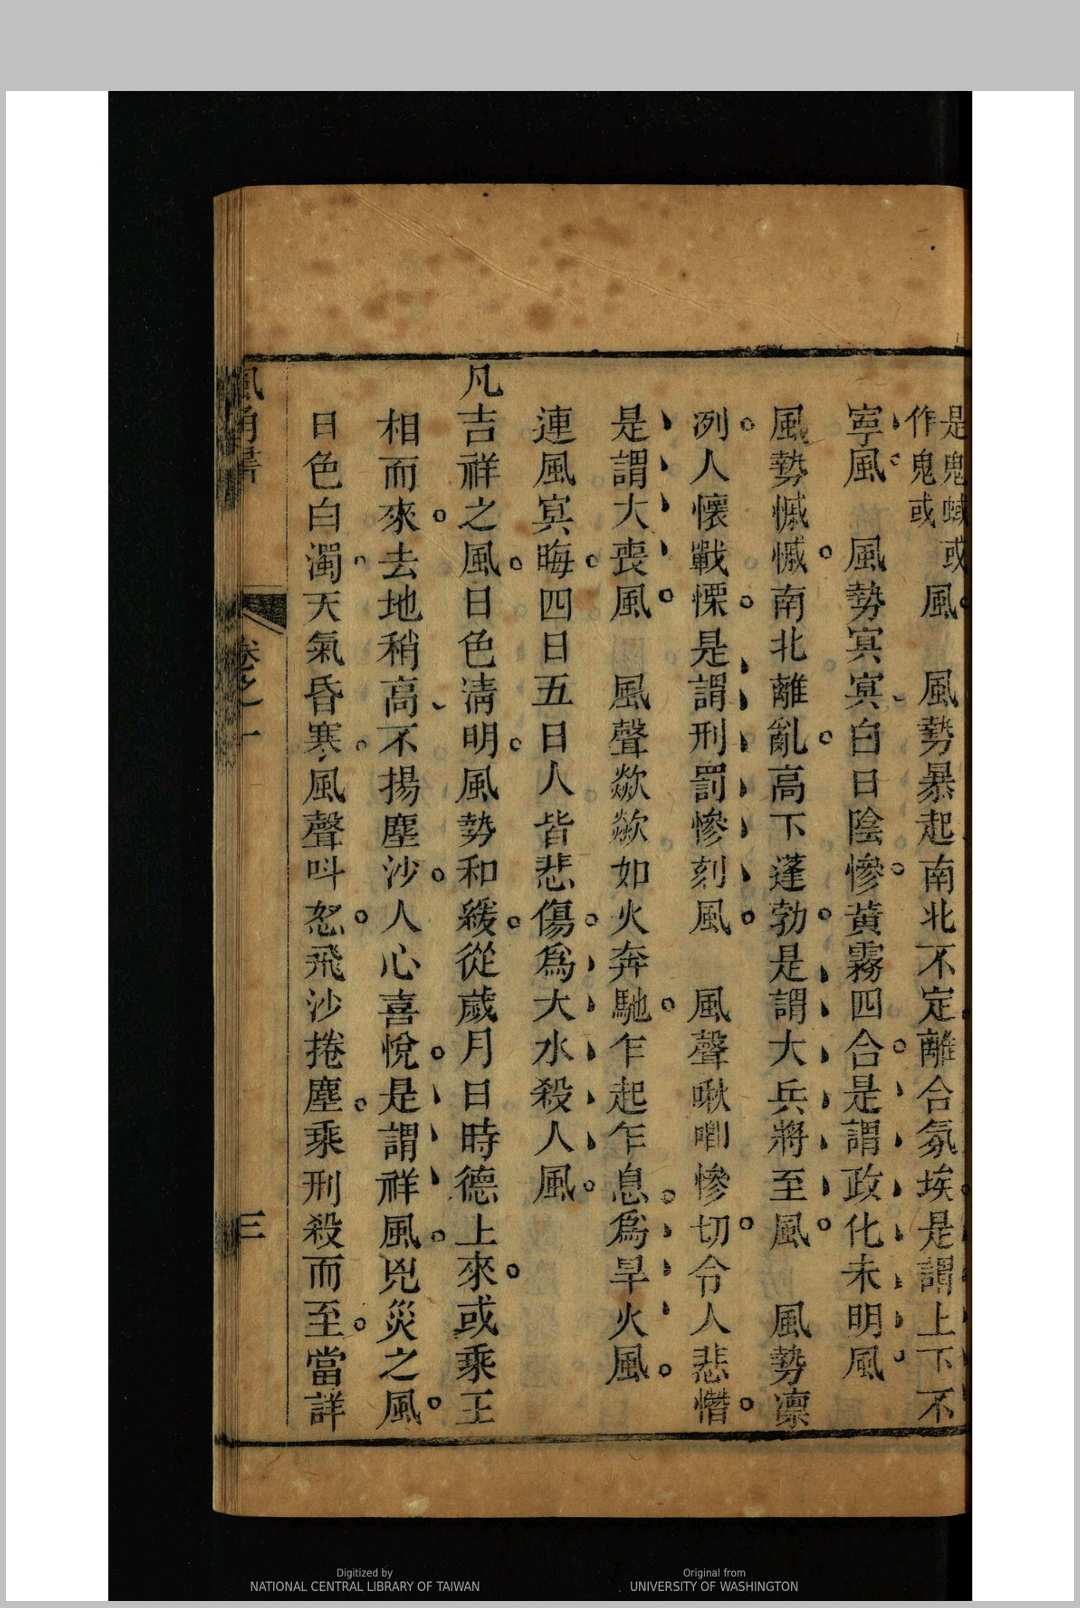 是鬼蜮或
作鬼或
風　風勢暴起南北不定離合氛埃是謂上下不
寧風　風勢冥冥白日陰慘黃霧四合是謂政化未明風
風勢慽慽南北離亂高下蓬勃是謂大兵將至風　風勢凛
冽人懷戰慄是謂刑罰慘刻風　風聲啾唧慘切令人悲憯
是謂大喪風　風聲欻欻如火奔馳乍起乍息爲旱火風
連風冥晦四日五日人皆悲傷爲大水殺人風
凡吉祥之風日色清明風勢和緩從歲月日時德上來或乘王
相而來去地稍高不揚塵沙人心喜悅是謂祥風兇災之風
日色白濁天氣昏寒風聲呌怒飛沙捲塵乘刑殺而至當詳
風角書
卷之一
三
Digitized by
NATIONAL CENTRAL LIBRARY OF TAIWAN
Original from
UNIVERSITY OF WASHINGTON